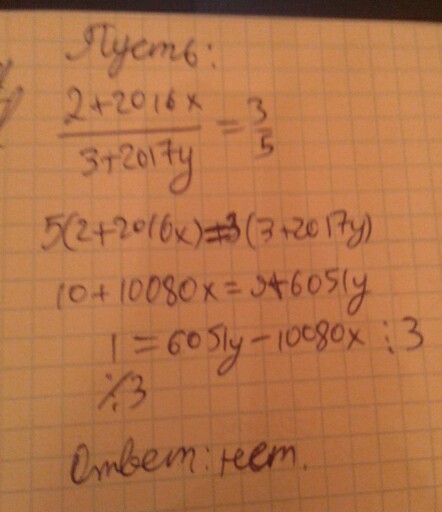 Пусть:
2+2016x / 3+2017y = 3/5
5(2+2016x)=3(3+2017y)
10+10080x=9+6051y
1=6051y-10080x ⋮3
⋮̸3
Ответ: нет.